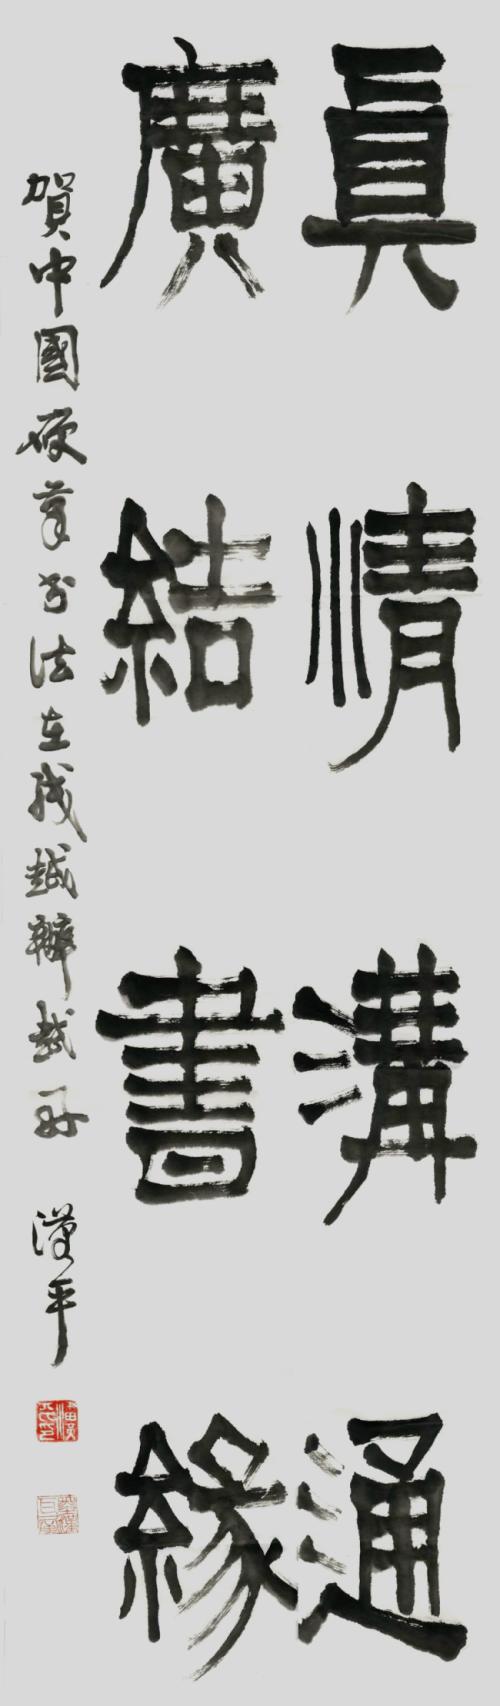 真情溝通
廣結書緣
賀中國硬筆书法在线越辦越好
漢平